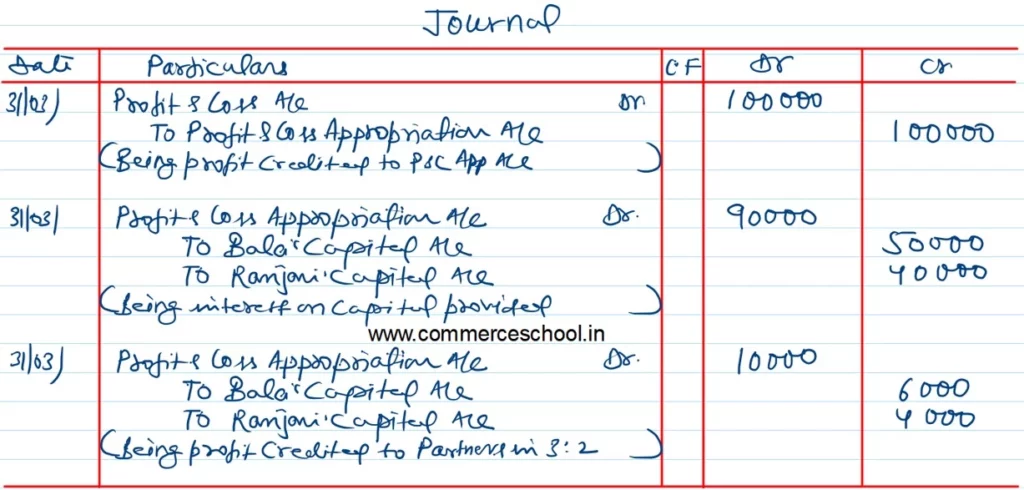 Journal
Date Particulars CF Dr Cr
31/03/ Profit & Loss A/c Dr 100000
To Profit & Loss Appropriation A/c 100000
(Being profit credited to P&L App A/c)
31/03/ Profit & Loss Appropriation A/c Dr. 90000
To Bala's Capital A/c 50000
To Ranjani's Capital A/c 40000
(Being interest on Capital provided)
www.commerceschool.in
31/03/ Profit & Loss Appropriation A/c Dr. 10000
To Bala's Capital A/c 6000
To Ranjani's Capital A/c 4000
(Being profit Credited to Partners in 3:2)